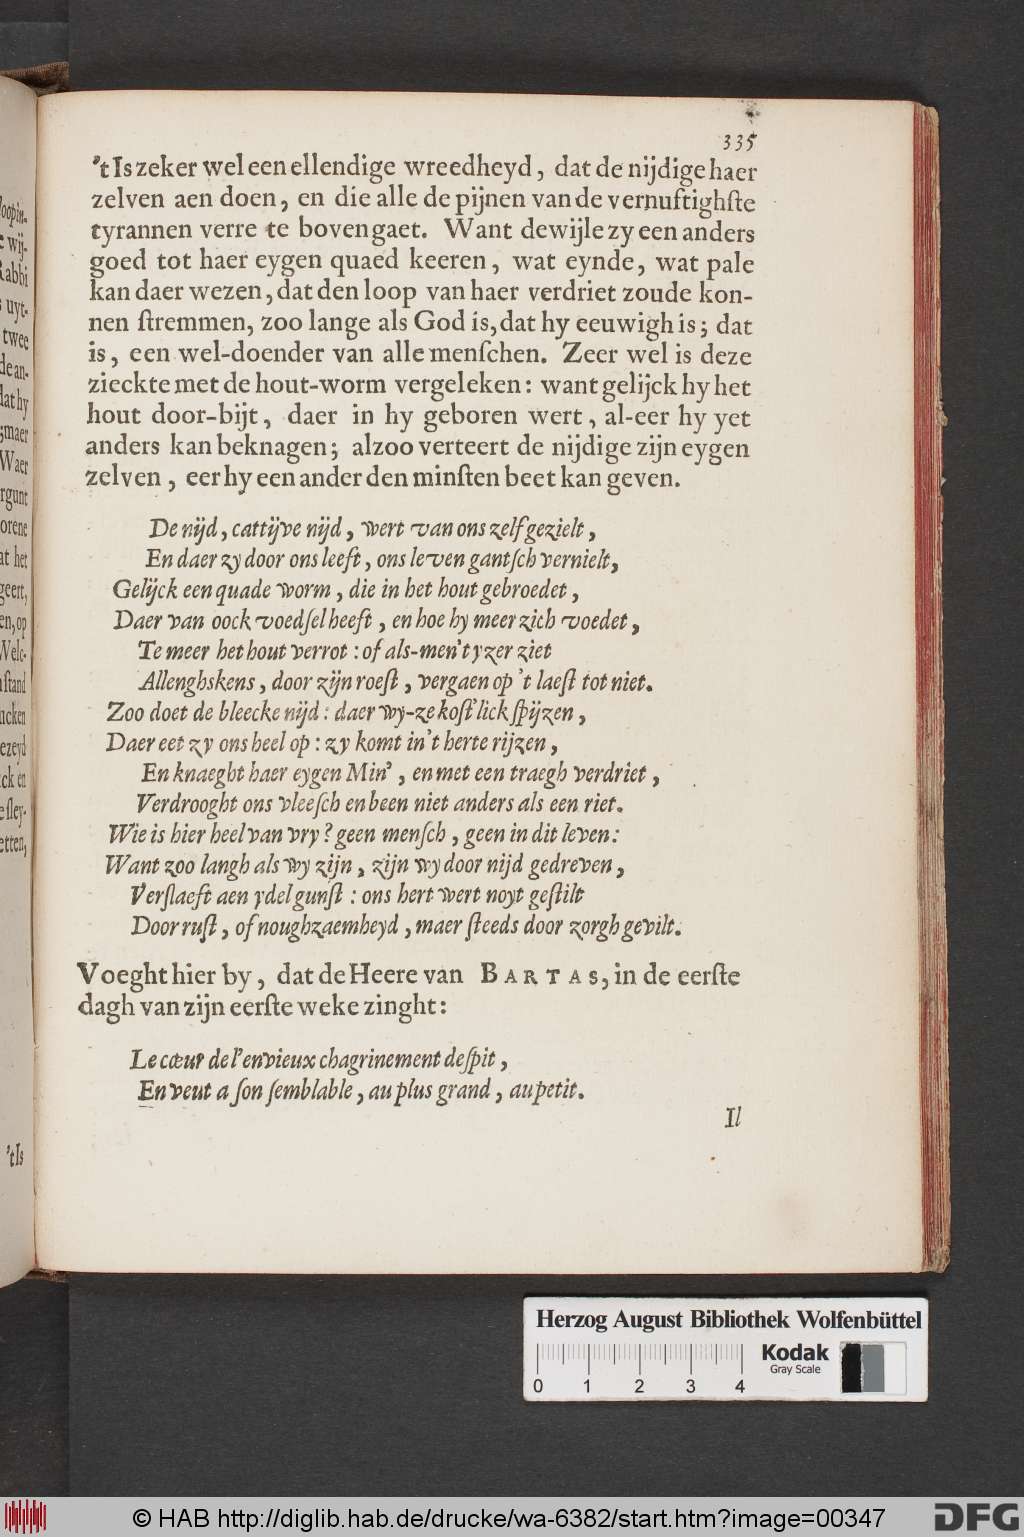 335
'tIs zeker wel een ellendige wreedheyd, dat de nijdige haer
zelven aen doen, en die alle de pijnen van de vernuftighſte
tyrannen verre te boven gaet. Want dewijle zy een anders
goed tot haer eygen quaed keeren, wat eynde, wat pale
kan daer wezen, dat den loop van haer verdriet zoude kon-
nen ſtremmen, zoo lange als God is, dat hy eeuwigh is; dat
is, een wel-doender van alle menſchen. Zeer wel is deze
zieckte met de hout-worm vergeleken: want gelijck hy het
hout door-bijt, daer in hy geboren wert, al-eer hy yet
anders kan beknagen; alzoo verteert de nijdige zijn eygen
zelven, eer hy een ander den minſten beet kan geven.
De nijd, cattijve nijd, wert van ons zelf gezielt,
En daer zy door ons leeft, ons leven gantſch vernielt,
Gelijck een quade worm, die in het hout gebroedet,
Daer van oock voedſel heeft, en hoe hy meer zich voedet,
Te meer het hout verrot: of als-men 't yzer ziet
Allenghskens, door zijn roeſt, vergaen op 't laeſt tot niet.
Zoo doet de bleecke nijd: daer wy-ze koſt'lick ſpijzen,
Daer eet zy ons heel op: zy komt in't herte rijzen,
En knaeght haer eygen Min', en met een traegh verdriet,
Verdrooght ons vleeſch en been niet anders als een riet.
Wie is hier heel van vry? geen menſch, geen in dit leven:
Want zoo langh als wy zijn, zijn wy door nijd gedreven,
Verſlaeft aen ydel gunſt: ons hert wert noyt geſtilt
Door ruſt, of noughzaemheyd, maer ſteeds door zorgh gevilt.
Voeght hier by, dat de Heere van BARTAS, in de eerſte
dagh van zijn eerſte weke zinght:
Le cœur de l'envieux chagrinement deſpit,
En veut a ſon ſemblable, au plus grand, au petit.
Il
loopin-
e wij-
Rabbi
s uyt-
twee
de an-
dat hy
;maer
Waer
rgunt
orene
at het
geert,
en, op
Welc-
nſtand
ucken
ezeyd
ck en
e ſley-
etten,
'tIs
Herzog August Bibliothek Wolfenbüttel
Kodak
Gray Scale
0 1 2 3 4
© HAB http://diglib.hab.de/drucke/wa-6382/start.htm?image=00347
DFG